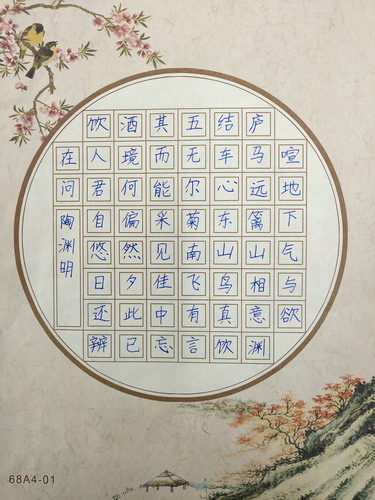 饮酒其五结庐
在人境而无车马喧
问君何能尔心远地
自偏采菊东篱下
悠然见南山山气
日夕佳飞鸟相与
还此中有真意欲
辨已忘言饮渊
陶渊明
68A4-01